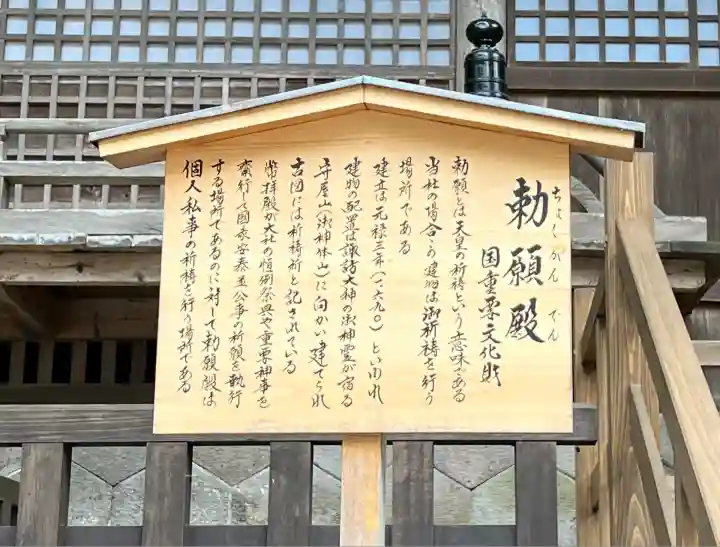 勅願殿
ちょくがんでん
国重要文化財
勅願とは天皇の祈祷という意味である
当社の場合この建物は御祈祷を行う
場所である
建立は元禄三年(一六九〇)といわれ
建物の配置は諏訪大神の御神霊が宿る
守屋山(御神体山)に向かい建てられ
古図には祈祷所と記されている
幣拝殿が大社の恒例祭典や重要神事を
斎行して国家安泰並公事の祈願を執行
する場所であるのに対して勅願殿は
個人私事の祈祷を行う場所である